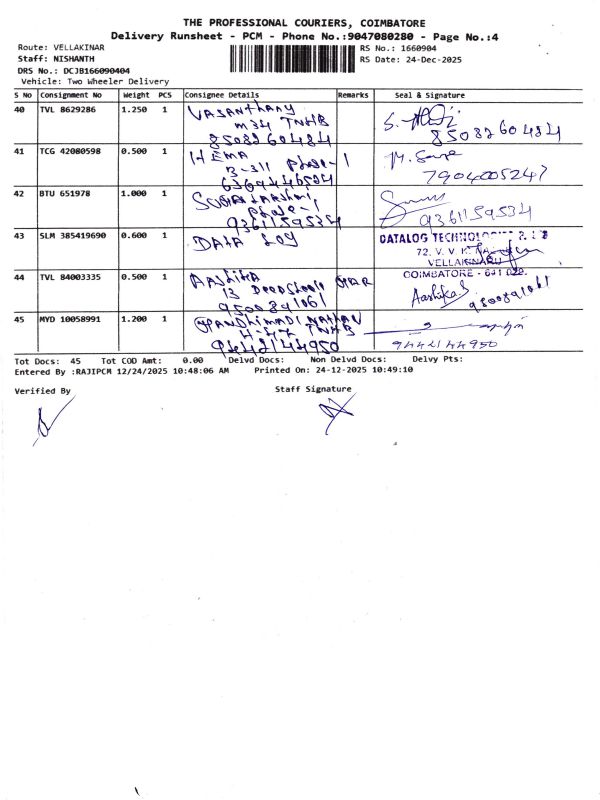 THE PROFESSIONAL COURIERS, COIMBATORE
Delivery Runsheet - PCM - Phone No.:9047080280 - Page No.:4
Route: VELLAKINAR RS No.: 1660904
Staff: NISHANTH RS Date: 24-Dec-2025
DRS No.: DCJB166090404
Vehicle: Two Wheeler Delivery
S No Consignment No Weight PCS Consignee Details Remarks Seal & Signature
40 TVL 8629286 1.250 1 Vasanthany
M34 TNHB
8508260484 8508260484
41 TCG 42080598 0.500 1 HEMA
B-311 Phase-1
6369446524 7904005247
42 BTU 651978 1.000 1
Phase-1
9361159534 9361159534
43 SLM 385419690 0.600 1 DATA LOG DATALOG TECHNOLOGIES P. LTD
72, V. V. K.
VELLAKINARU
COIMBATORE - 641 029.
44 TVL 84003335 0.500 1 AAShika
13
9500891061 Aashika S 9500891061
45 MYD 10058991 1.200 1 PANDhiMADiNAthAN
H-47 TNHB
9442144950 9442144950
Tot Docs: 45 Tot COD Amt: 0.00 Delvd Docs: Non Delvd Docs: Delvy Pts:
Entered By :RAJIPCM 12/24/2025 10:48:06 AM Printed On: 24-12-2025 10:49:10
Verified By Staff Signature